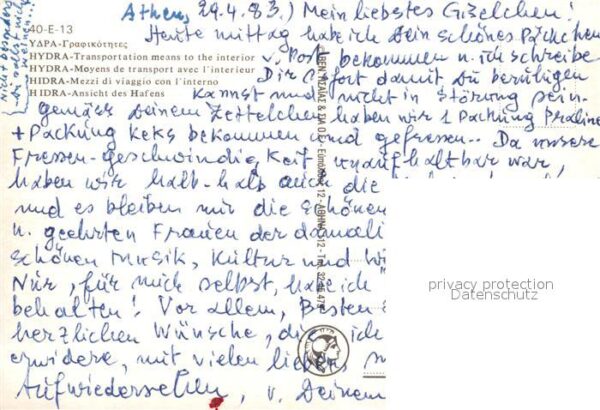 Athen, 29.4.83.) Mein liebstes Giselchen!
40-E-13
ΥΔΡΑ-Γραφικότητες
HYDRA-Transportation means to the interior
HYDRA-Moyens de transport avec l'interieur
HIDRA-Mezzi di viaggio con l'interno
HIDRA-Ansicht des Hafens
Heute mittag habe ich Dein schönes Päckchen
v. Post bekommen u. ich schreibe
Dir sofort damit Du beruhigen
kannst und nicht in Störung sein.
gemäss Deinem Zettelchen haben wir 1 Packung Praline
+ Packung Keks bekommen und gefressen.. Da unsere
Fressen-Geschwindigkeit unaufhaltbar war,
haben wir halb-halb auch die
und es bleiben mir die schönen
u. geehrten Frauen der damali
schönen Musik, Kultur und Wi
Nur, für mich selbst, habe ich
behalten! Vor allem, Besten
herzlichen Wünsche, die ich
erwidere, mit vielen lieben,
Aufwiedersehen, v. Deinem
privacy protection
Datenschutz